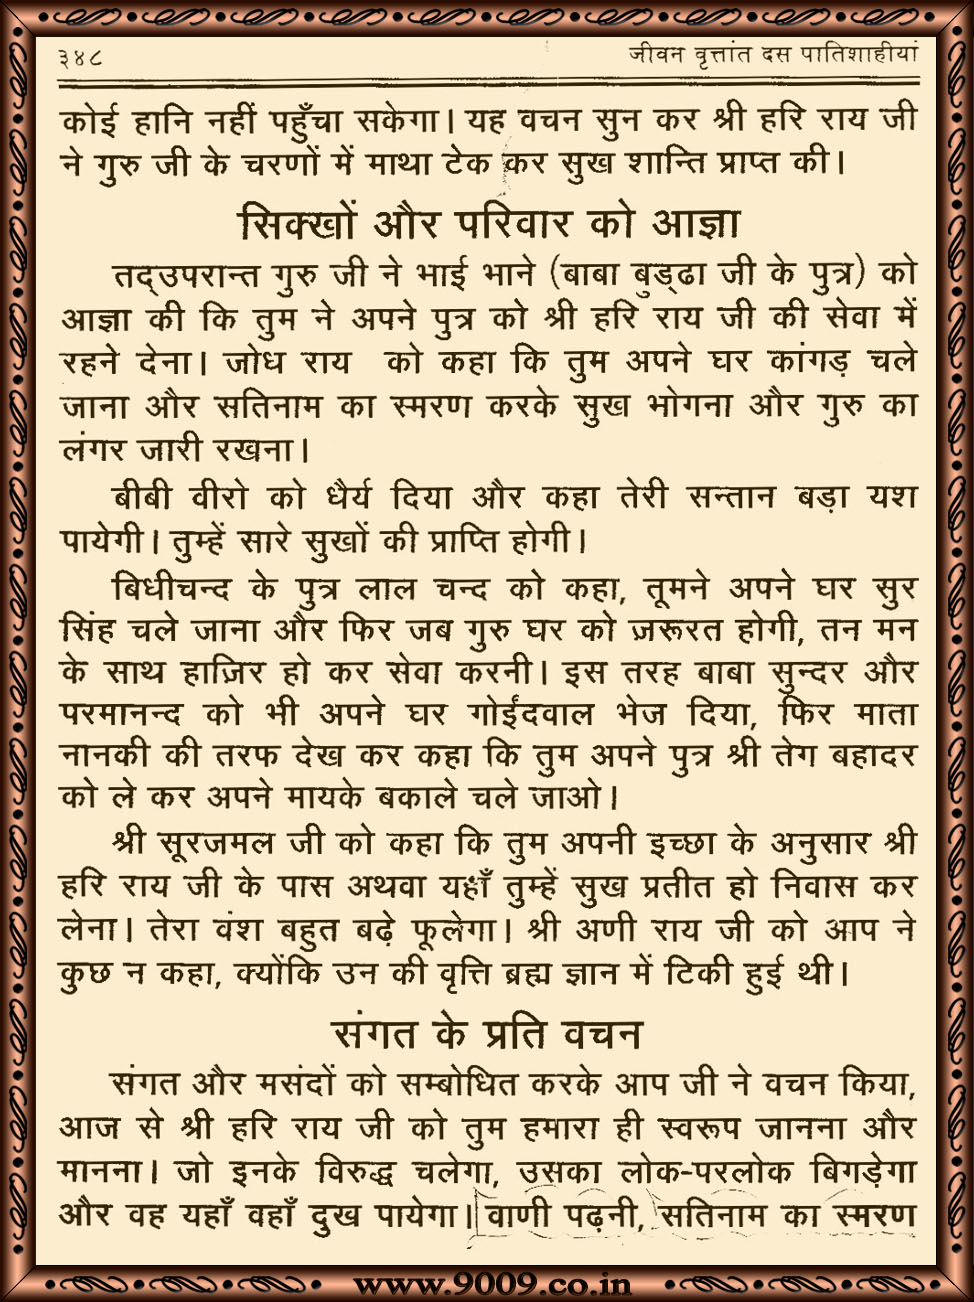 ३४८ जीवन वृत्तांत दस पातिशाहीयां
कोई हानि नहीं पहुँचा सकेगा। यह वचन सुन कर श्री हरि राय जी
ने गुरु जी के चरणों में माथा टेक कर सुख शान्ति प्राप्त की।
सिक्खों और परिवार को आज्ञा
तद्उपरान्त गुरु जी ने भाई भाने (बाबा बुड्ढा जी के पुत्र) को
आज्ञा की कि तुम ने अपने पुत्र को श्री हरि राय जी की सेवा में
रहने देना। जोध राय को कहा कि तुम अपने घर कांगड़ चले
जाना और सतिनाम का स्मरण करके सुख भोगना और गुरु का
लंगर जारी रखना।
बीबी वीरो को धैर्य दिया और कहा तेरी सन्तान बड़ा यश
पायेगी। तुम्हें सारे सुखों की प्राप्ति होगी।
बिधीचन्द के पुत्र लाल चन्द को कहा, तूमने अपने घर सुर
सिंह चले जाना और फिर जब गुरु घर को ज़रूरत होगी, तन मन
के साथ हाज़िर हो कर सेवा करनी। इस तरह बाबा सुन्दर और
परमानन्द को भी अपने घर गोईंदवाल भेज दिया, फिर माता
नानकी की तरफ देख कर कहा कि तुम अपने पुत्र श्री तेग बहादर
को ले कर अपने मायके बकाले चले जाओ।
श्री सूरजमल जी को कहा कि तुम अपनी इच्छा के अनुसार श्री
हरि राय जी के पास अथवा यहाँ तुम्हें सुख प्रतीत हो निवास कर
लेना। तेरा वंश बहुत बढ़े फूलेगा। श्री अणी राय जी को आप ने
कुछ न कहा, क्योंकि उन की वृत्ति ब्रह्म ज्ञान में टिकी हुई थी।
संगत के प्रति वचन
संगत और मसंदों को सम्बोधित करके आप जी ने वचन किया,
आज से श्री हरि राय जी को तुम हमारा ही स्वरूप जानना और
मानना। जो इनके विरुद्ध चलेगा, उसका लोक-परलोक बिगड़ेगा
और वह यहाँ वहाँ दुख पायेगा। वाणी पढ़नी, सतिनाम का स्मरण
www.9009.co.in